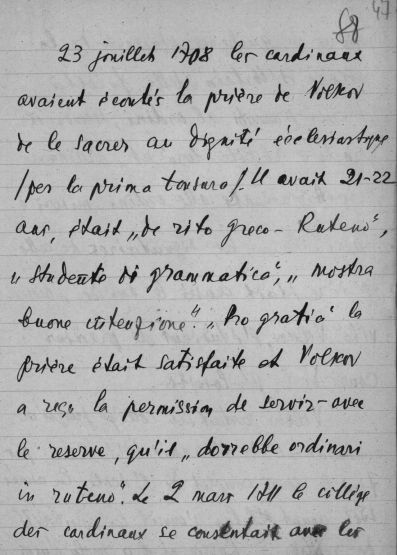 47
88
23 jouillet 1708 les cardinaux
avaient écoutés la prière de Volkov
de le sacrer au dignité écclesiastique
/per la prima tonsura/. Il avait 21-22
ans, était „de rito greco-Ruteno“,
„studente di grammatica“, „mostra
buone intenzione“. „Pro gratia“ la
prière était satisfaite et Volkov
a reçu la permission de servir-avec
le reserve, qu'il „dorrebbe ordinari
in ruteno“. Le 2 mars 1711 le collège
des cardinaux se consentait avec les